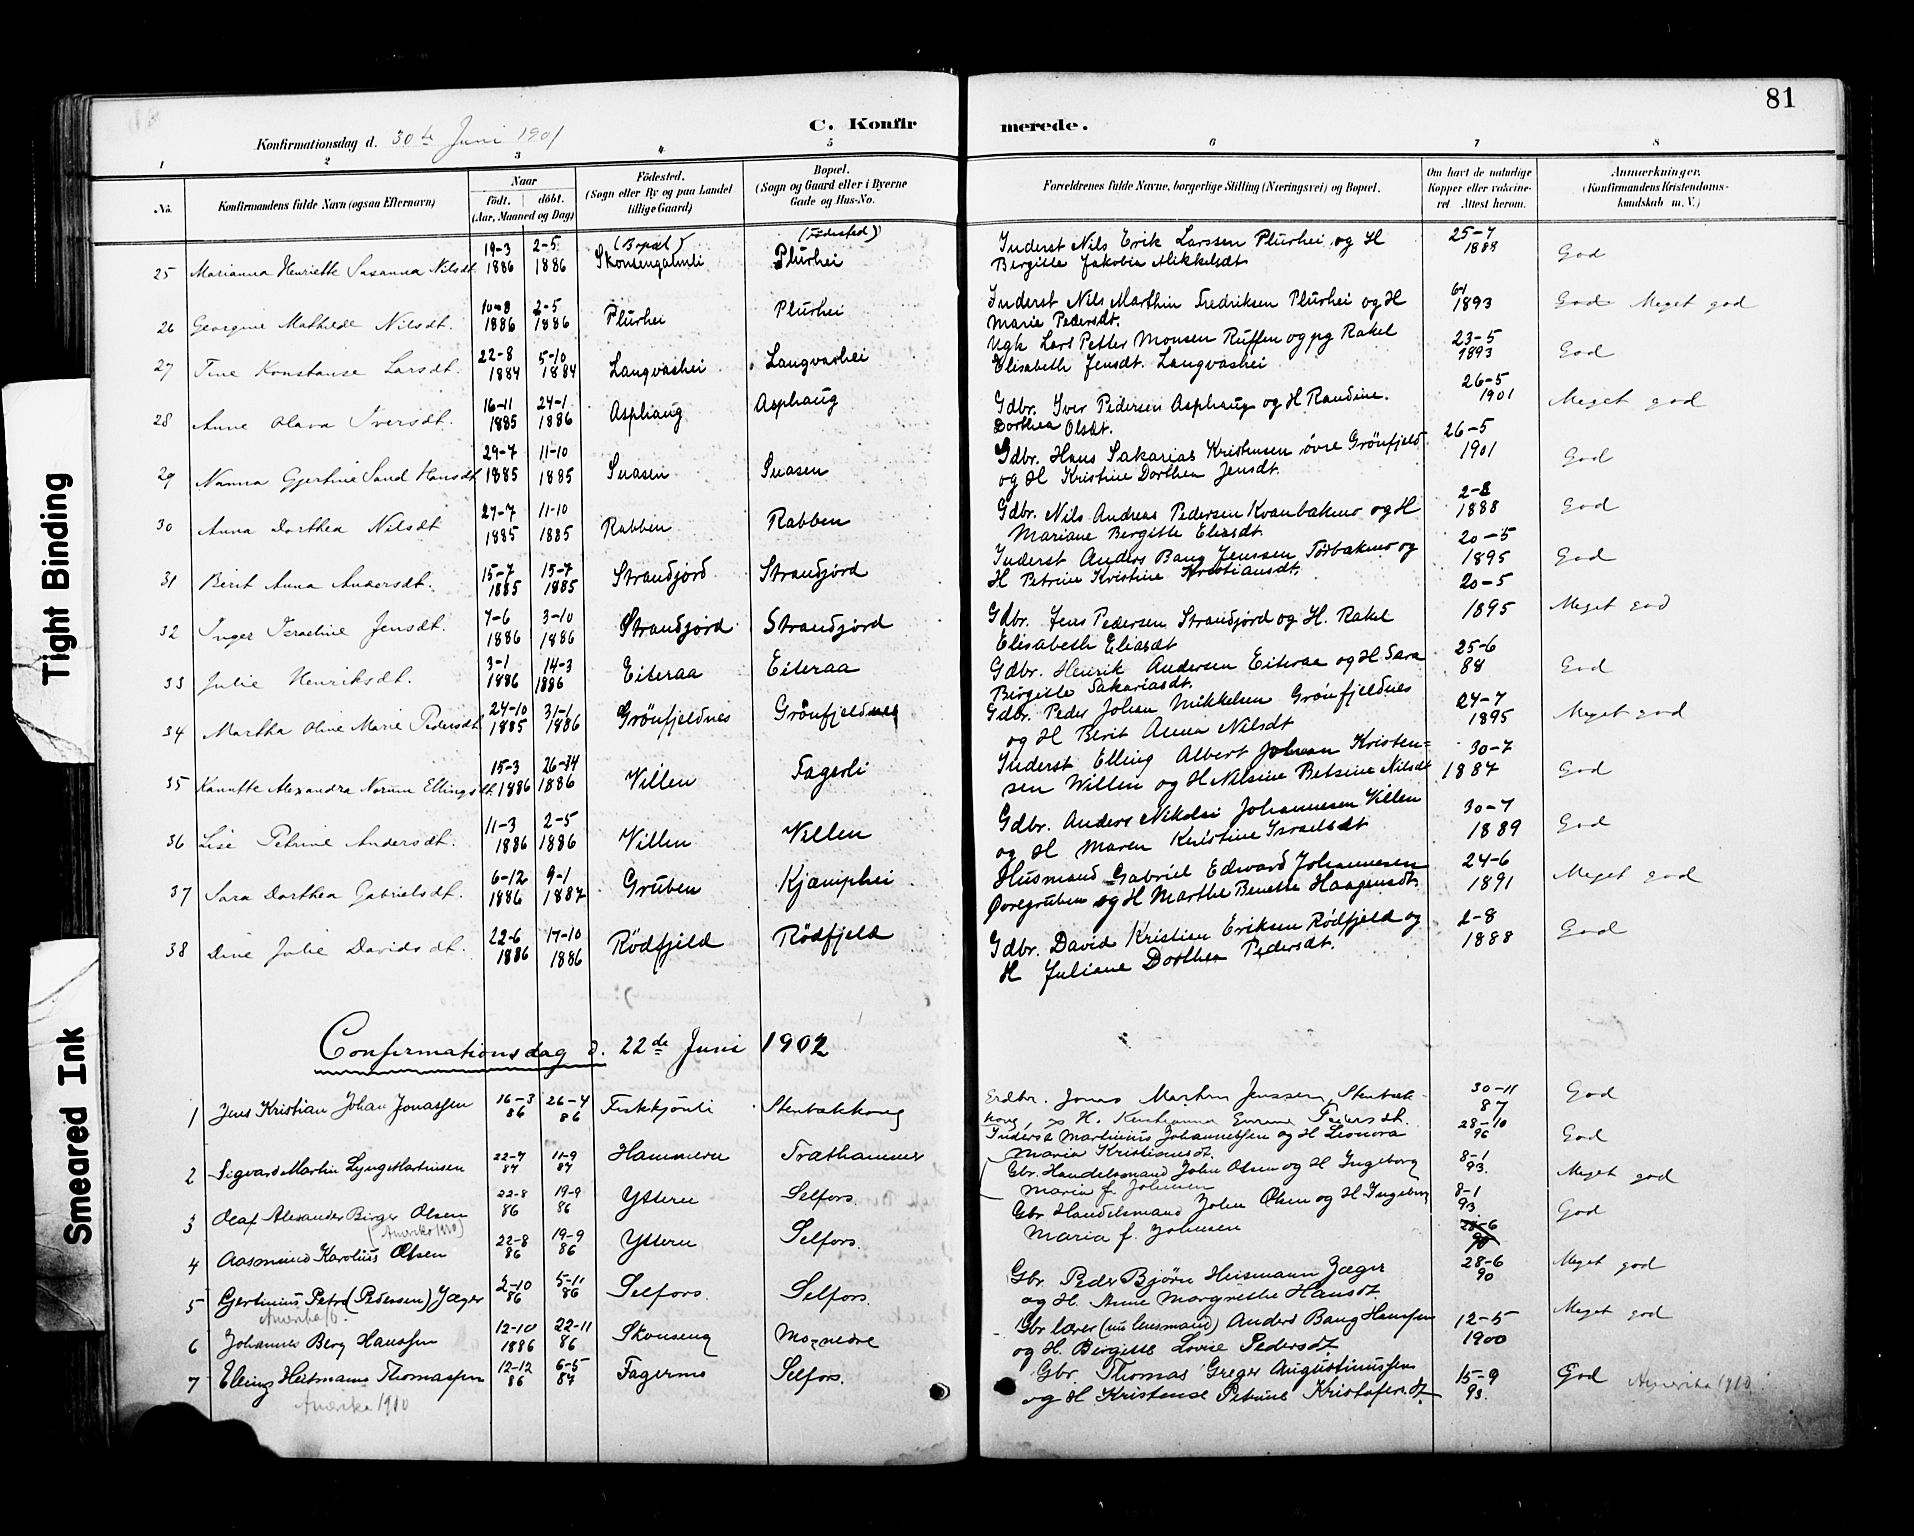 81
C. Konfirmerede.
Konfirmationsdag d. 30te Juni 1901
1 2 3 4 5 6 7 8
No.
Konfirmandens fulde Navn (ogsaa Efternavn)
Naar
født. døbt.
(Aar, Maaned og Dag)
Fødested.
(Sogn eller By og paa Landet tillige Gaard)
Bopæl.
(Sogn og Gaard eller i Byerne Gade og Hus-No.
Forældrenes fulde Navne, borgerlige Stilling (Næringsvei) og Bopæl.
Om havt de naturlige Kopper eller vaccineret. Attest herom.
Anmerkninger.
(Konfirmandens Kristendomskundskab m. V.)
(Bopæl) (Fødested)
25 Marianna Henriette Susanna Nilsdt. 19-3 1886 2-5 1886 Skonsengamli Plurhei Inderst Nils Erik Larssen Plurhei og H 25-7 1888 God
Birgitte Jakobia Mikkelsdt
26 Georgine Mathilde Nilsdt. 10-8 1886 2-5 1886 Plurhei Plurhei Inderst Nils Marthin Fredriksen Plurhei og H 1893 God Meget god
Marie Pedersdt.
27 Tine Konstanse Larsdt. 22-8 1884 5-10 1884 Langvashei Langvashei Ugk Lars Petter Monsen Ruffen og pg Rakel 23-5 1893 God
Elisabeth Jensdt. Langvashei
28 Anne Olava Iversdt. 16-11 1885 24-1 1886 Asphaug Asphaug Gdbr. Iver Pedersen Asphaug og H Randine 26-5 1901 Meget god
Dorthea Olsdt.
29 Nanna Gjertine Sand Hansdt 29-7 1885 11-10 1885 Svasen Svasen Gdbr. Hans Sakarias Kristensen øvre Grönfjeld 26-5 1901 God
og H Kristine Dorthea Jensdt.
30 Anna Dorthea Nilsdt 27-7 1885 11-10 1885 Rabben Rabben Gdbr. Nils Andreas Pedersen Kvanbakmo og H 2-8 1888 God
Mariane Bergitte Eliasdt
31 Berit Anna Andersdt. 15-7 1885 15-7 1885 Strandjord Strandjord Inderst Anders Bang Jenssen Torbakmo og 20-5 1895 God
H Petrine Kristine Kristiansdt.
32 Inger Israeline Jensdt. 7-6 1886 3-10 1886 Strandjord Strandjord Gdbr. Jens Pedersen Strandjord og H. Rakel 20-5 1895 Meget god
Elisabeth Eliasdt
33 Julie Henriksdt. 3-1 1886 14-3 1886 Eiteraa Eiteraa Gdbr. Henrik Andersen Eiteraa og H Sara 25-6 88 God
Birgitte Sakariasdt.
34 Martha Oline Marie Pedersdt. 24-10 1885 31-1 1886 Grönfjeldnes Grönfjeldnes Gdbr. Peder Johan Mikkelsen Grönfjeldnes 24-7 1895 Meget god
og H Berit Anna Nilsdt
35 Kanutte Alexandra Norum Ellingsdt. 15-3 1886 1886 Villen Fagerli Inderst Elling Albert Johan Kristen= 30-7 1887 God
sen Willen og H Nilsine Betsine Nilsdt
36 Lise Petrine Andersdt. 11-3 1886 2-5 1886 Villen Villen Gdbr. Anders Nikolai Johannesen Villen 30-7 1889 God
og H Maren Kristine Israelsdt
37 Sara Dorthea Gabrielsdt. 6-12 1886 9-1 1887 Gruben Kjamphei Husmand Gabriel Edward Johannesen 24-6 1891 Meget god
Øvregruben og H Marthe Benette Haagensdt.
38 Dine Julie Davidsdt. 22-6 1886 17-10 1886 Rödfjeld Rödfjeld Gdbr. David Kristian Eriksen Rödfjeld og 2-8 1888 God
H Juliane Dorthea Pedersdt.
Confirmationsdag d. 22de Juni 1902
1 Jens Kristian Johan Jonassen 16-3 86 26-4 86 Fiskkjønli Stenbækhaug Erdbr. Jonas Martin Jenssen Stenbæk- 30-11 87 God
haug, H. Pedersdt.
2 Sigvard Martin Lynge Martinsen 22-7 84 11-9 84 Hammeren Træthammer Inderst Martinus Johannessen og H Leonora 28-10 96 God
Maria Kristiansdt.
3 Olaf Alexander Birger Olsen 22-8 86 19-9 86 Yttern Selfors. Gbr. Handelsmand John Olsen og H Ingeborg 8-1 93. Meget god
Maria f. Johnsen
(Amerika 1910)
4 Aasmund Karolius Olsen 22-8 86 19-9 86 Yttern Selfors. Gbr Handelsmand John Olsen og H Ingeborg 8-1 93. God
Maria f. Johnsen 28-6 90
5 Gjertinius Petro (Pedersen) Jæger 2-10 86 5-11 86 Selfors. Selfors. Gbr. Peder Bjørn Heismann Jæger 28-6 90 Meget god
og H. Anne Margrethe Hansdt
Amerika
6 Johannes Berg Hanssen 12-10 1886 22-11 86 Skonseng Mo-nedre Gbr lærer (nu lensmand) Anders Bang Hanssen 12-5 1900 Meget god
og H. Birgitte Lovise Pedersdt
7 Eling Heitmann Thomassen 12-12 86 6-5 87 Fagermo Selfors. Gbr. Thomas Greger Augustinussen 15-9 93. God Amerika 1910
og H. Kristense Petrine Kristofersdt.
Amerika 1910
Tight Binding
Smeared Ink